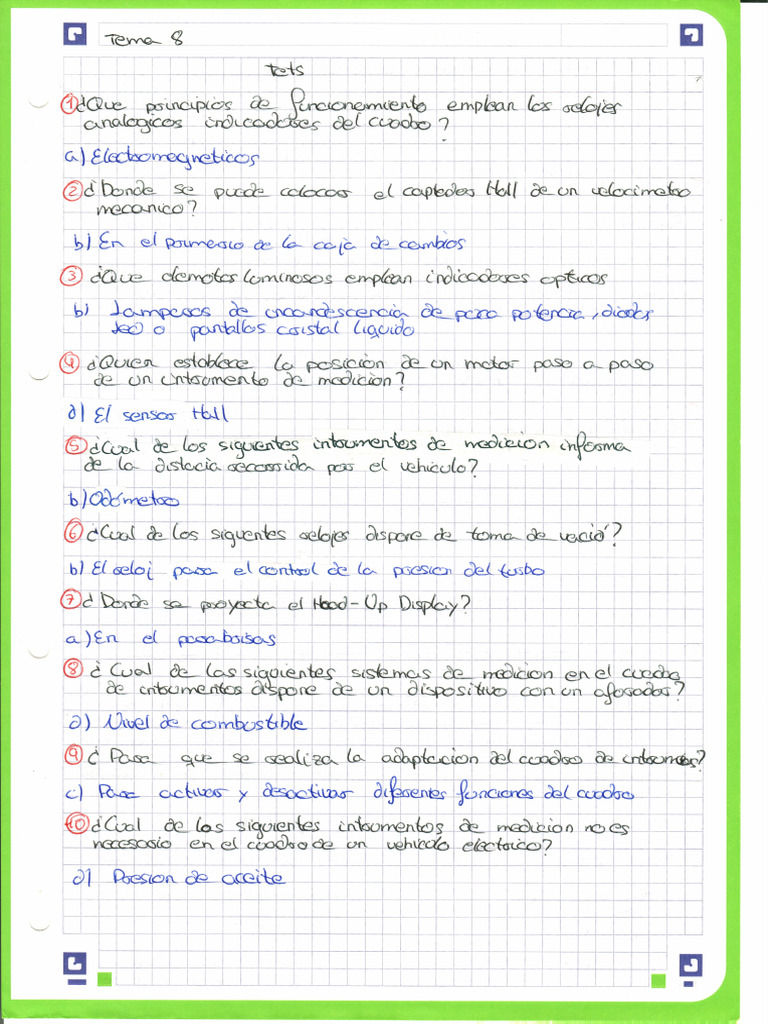 Tema 8
Tets
1 ¿Que principios de funcionamiento emplean los relojes
analogicos indicadores del cuadro?
a) Electromagneticos
2 ¿Donde se puede colocar el captador Hall de un velocimetro
mecanico?
b) En el primerio de la caja de cambios
3 ¿Que elemotos luminosos emplean indicadores opticos
b) Lamparas de incandescencia de para potencia, diodos
led o pantallas cristal liquido
4 ¿Quien establece la posición de un motor paso a paso
de un intrumento de medicion?
d) El sensor Hall
5 ¿Cual de los siguientes intrumentos de medicion informa
de la distacia recorrida por el vehiculo?
b) Odómetro
6 ¿Cual de los siguentes relojes dispore de toma de vació?
b) El reloj para el control de la presion del turbo
7 ¿Donde se proyecta el Head-Up Display?
a) En el parabrisas
8 ¿Cual de los siguientes sistemas de medicion en el cuadro
de intrumentos dispore de un dispositivo con un aforador?
d) Nivel de combustible
9 ¿Para que se realiza la adaptacion del cuadro de intrumen?
c) Para activar y desactivar diferentes funciones del cuadro
10 ¿Cual de los siguientes intrumentos de medicion no es
necesario en el cuadro de un vehiculo electrico?
d) Presion de aceite